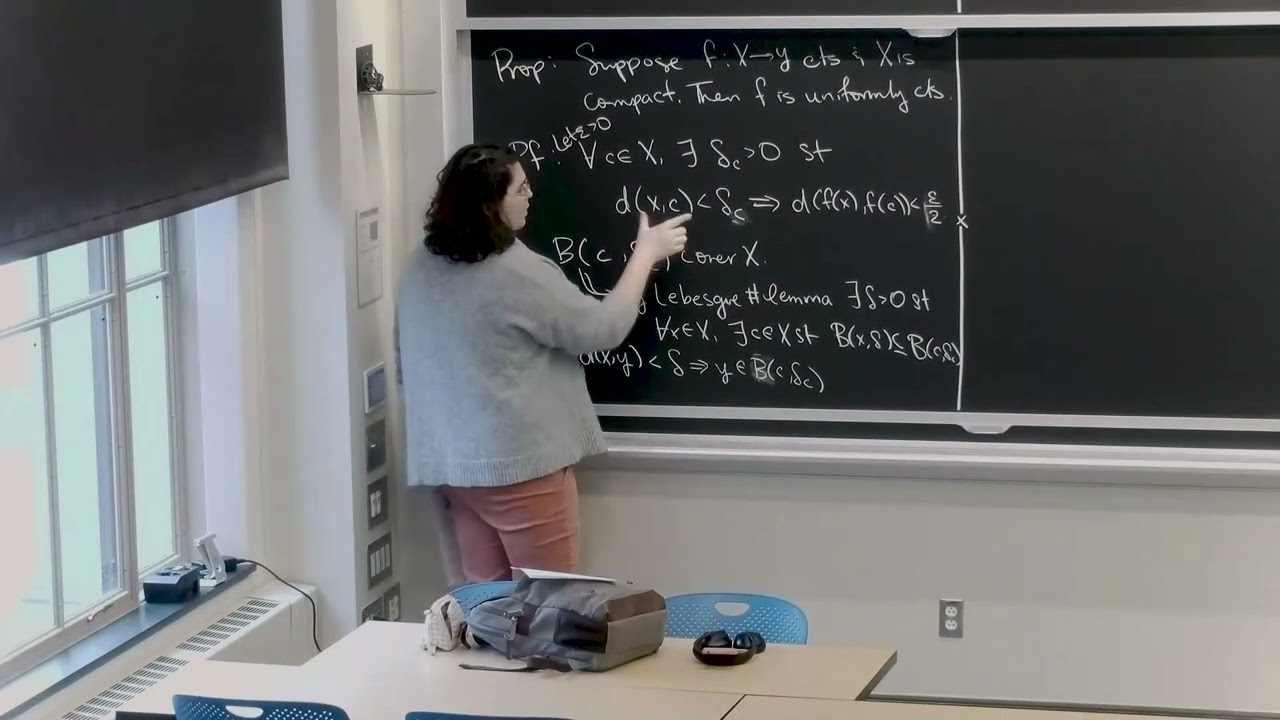 Prop: Suppose f: X→y cts & X is
compact. Then f is uniformly cts.
Pf: Let ε>0
∀ c∈ X, ∃ δ_c >0 st
d(x,c) < δ_c ⇒ d(f(x), f(c)) < ε/2
B(c, δ_c) cover X.
by Lebesgue # lemma ∃ δ>0 st
∀x∈X, ∃c∈X st B(x,δ) ⊆ B(c,δ_c)
d(x,y) < δ ⇒ y ∈ B(c,δ_c)